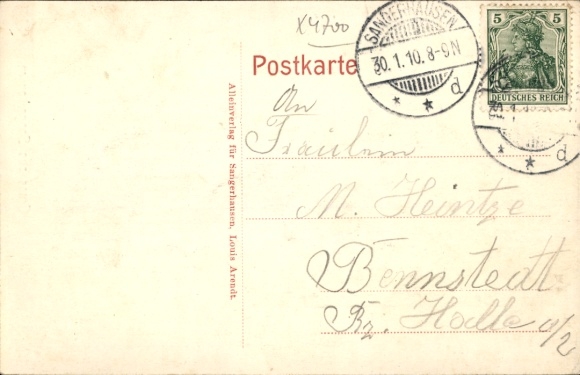 X4700
SANGERHAUSEN
30.1.10.8-9N
* * d
5 5
DEUTSCHES REICH
Postkarte
Alleinverlag für Sangerhausen, Louis Arendt.
An
Fräulein
M. Heintze
Bennstedt
Bz. Halle a/2
* * d